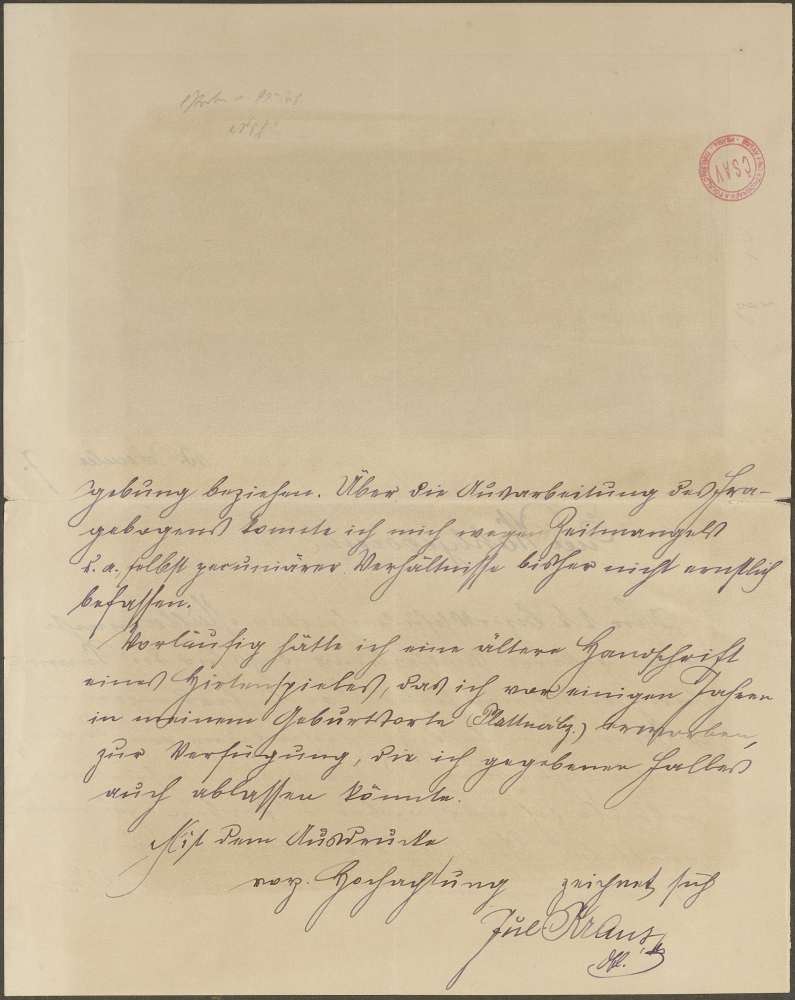 gebung beziehen. Über die Ausarbeitung des Fra-
gebogens konnte ich mich wegen Zeitmangels
u. a. selbst pecuniärer Verhältnisse bisher nicht ernstlich
befassen.
Vorläufig hätte ich eine ältere Handschrift
eines Hirtenspieles, das ich vor einigen Jahren
in meinem Geburtsorte erworben,
zur Verfügung, die ich gegebenen Falles
auch ablassen könnte.
Mit dem Ausdrucke
vorz. Hochachtung zeichnet sich
Jul. Kraus
ČSAV